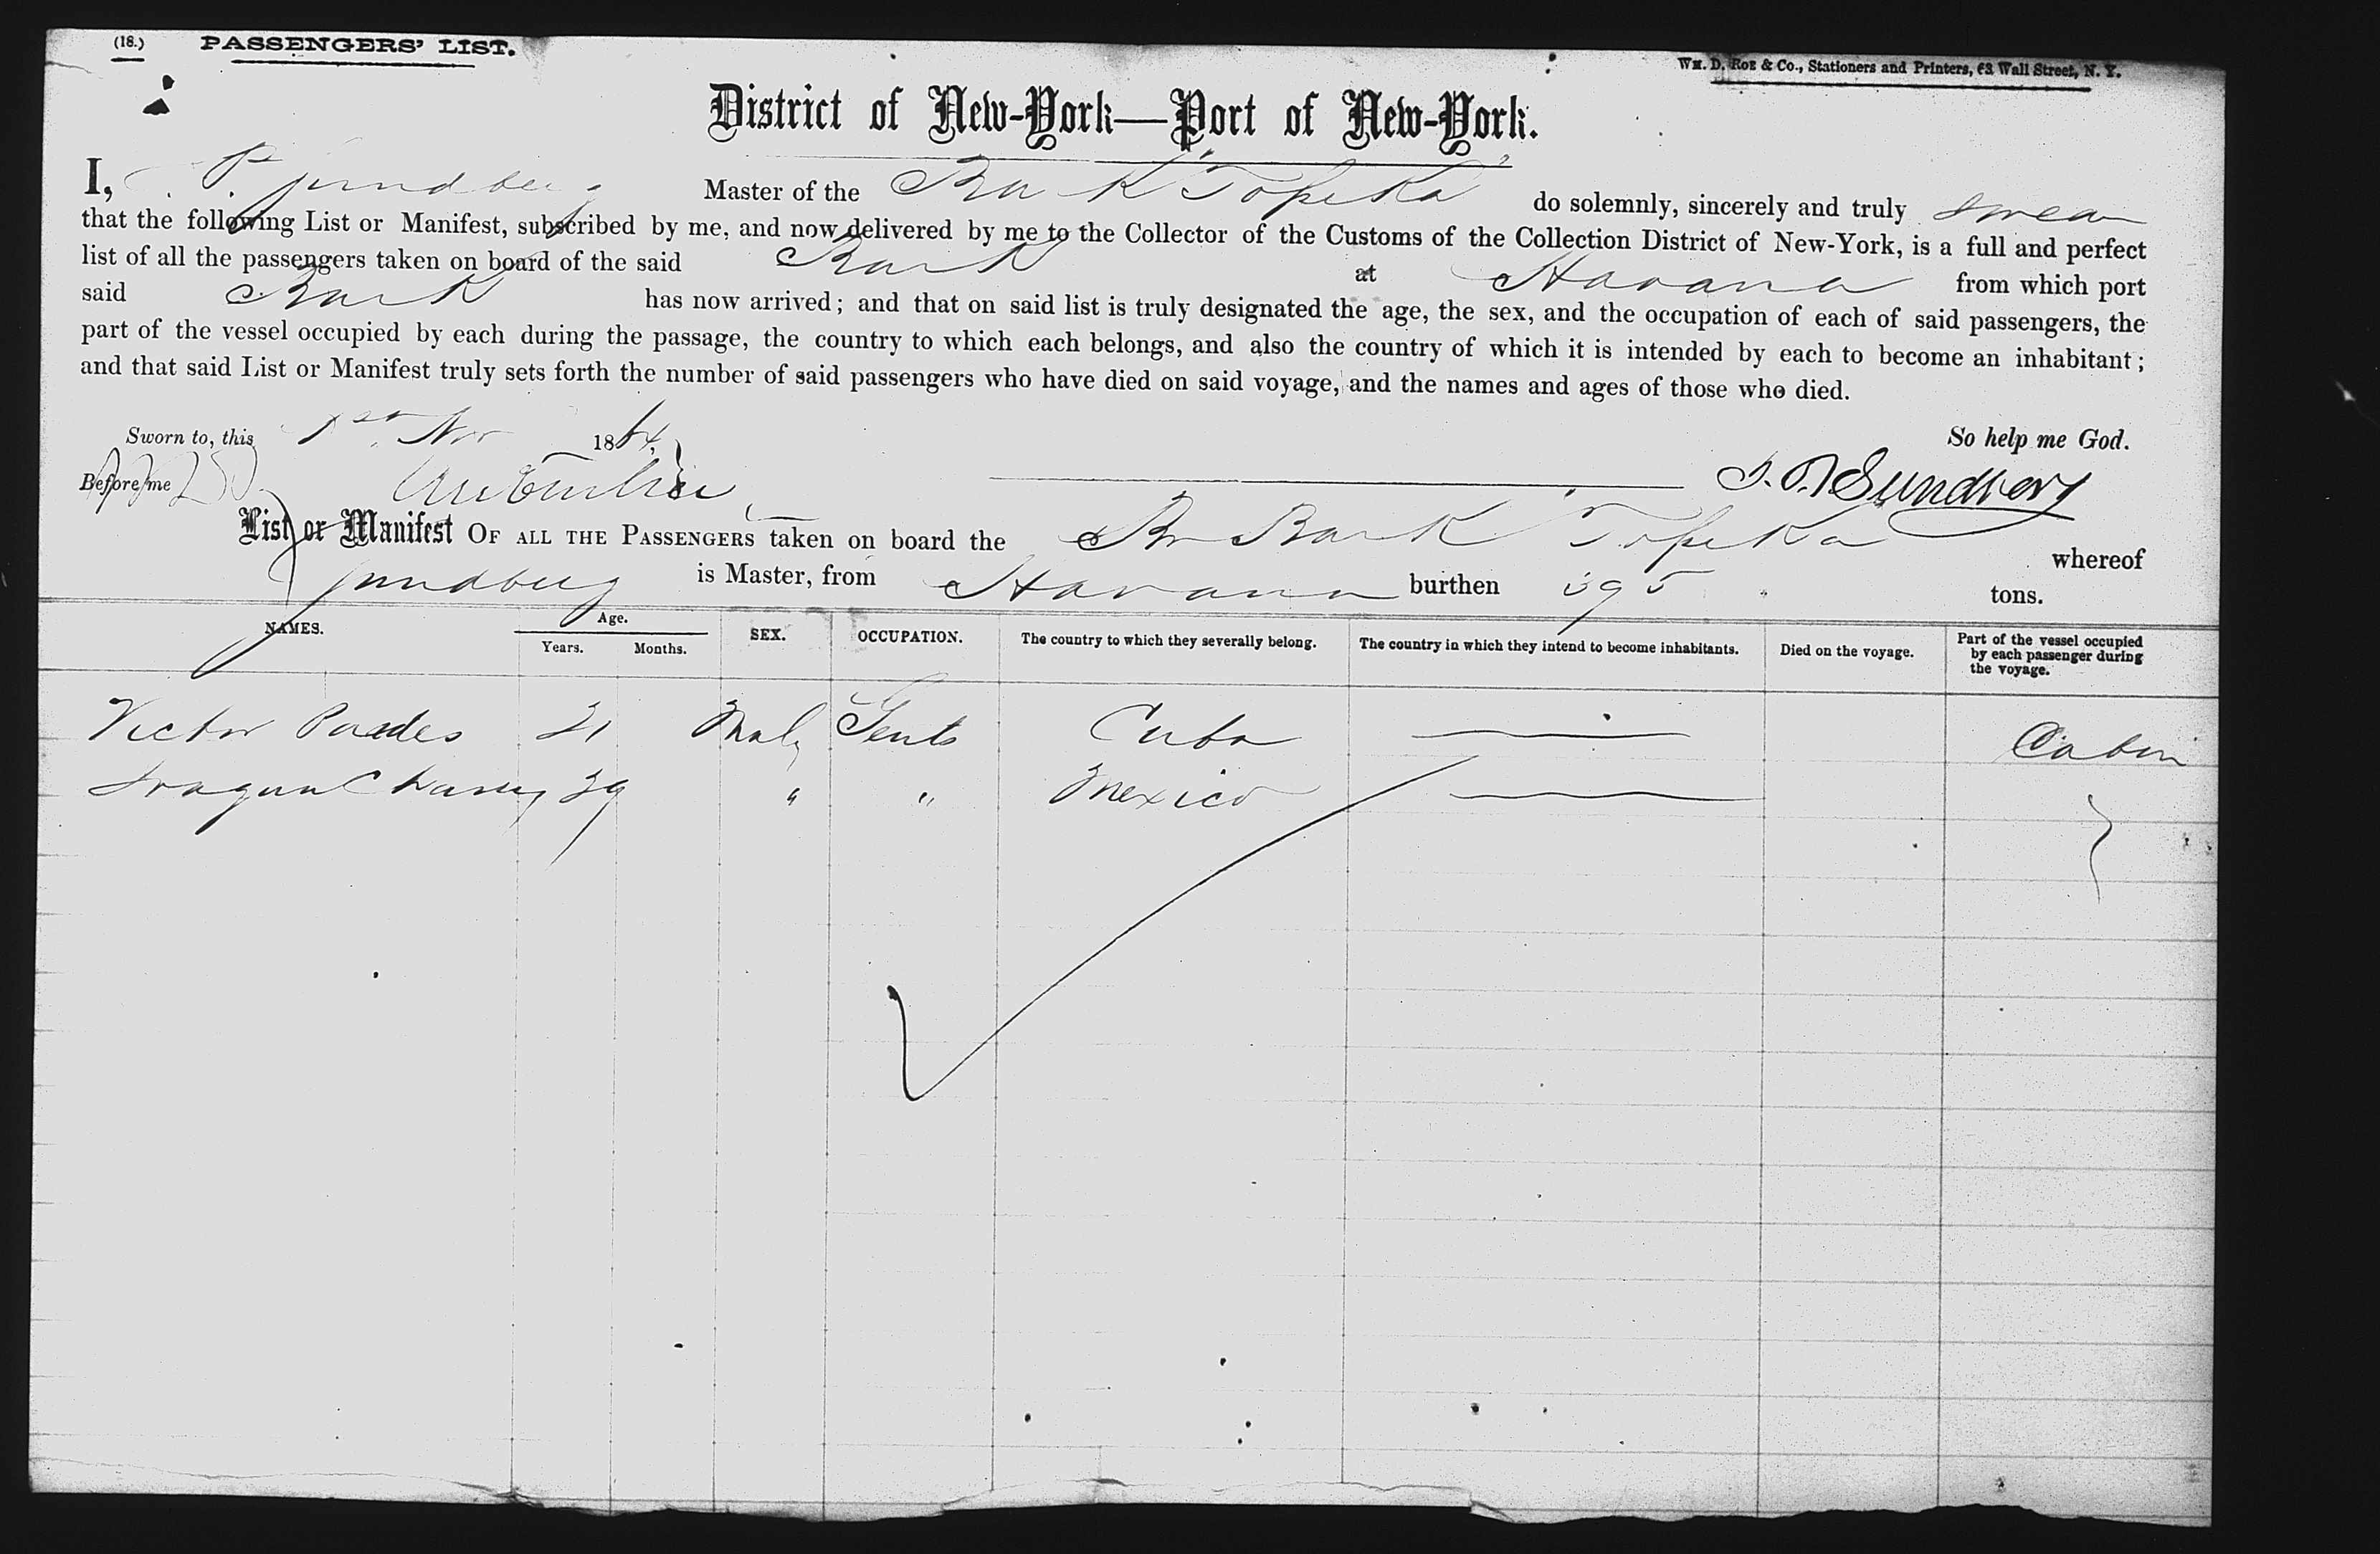 (18.) PASSENGERS' LIST.
WM. D. ROE & Co., Stationers and Printers, 63 Wall Street, N. Y.
District of New-York—Port of New-York.
I, P. Sundberg Master of the Bark "Topeka" do solemnly, sincerely and truly swear
that the following List or Manifest, subscribed by me, and now delivered by me to the Collector of the Customs of the Collection District of New-York, is a full and perfect
list of all the passengers taken on board of the said Bark at Havana from which port
said Bark has now arrived; and that on said list is truly designated the age, the sex, and the occupation of each of said passengers, the
part of the vessel occupied by each during the passage, the country to which each belongs, and also the country of which it is intended by each to become an inhabitant;
and that said List or Manifest truly sets forth the number of said passengers who have died on said voyage, and the names and ages of those who died.
Sworn to, this 1st Nov 1864 So help me God.
Before me Sundberg
List or Manifest OF ALL THE PASSENGERS taken on board the Br Bark Topeka whereof
Sundberg is Master, from Havana burthen 395 tons.
NAMES. Age. Years. Months. SEX. OCCUPATION. The country to which they severally belong. The country in which they intend to become inhabitants. Died on the voyage. Part of the vessel occupied by each passenger during the voyage.
Victor 21 Male Gents Cuba — Cabin
29 " " Mexico —